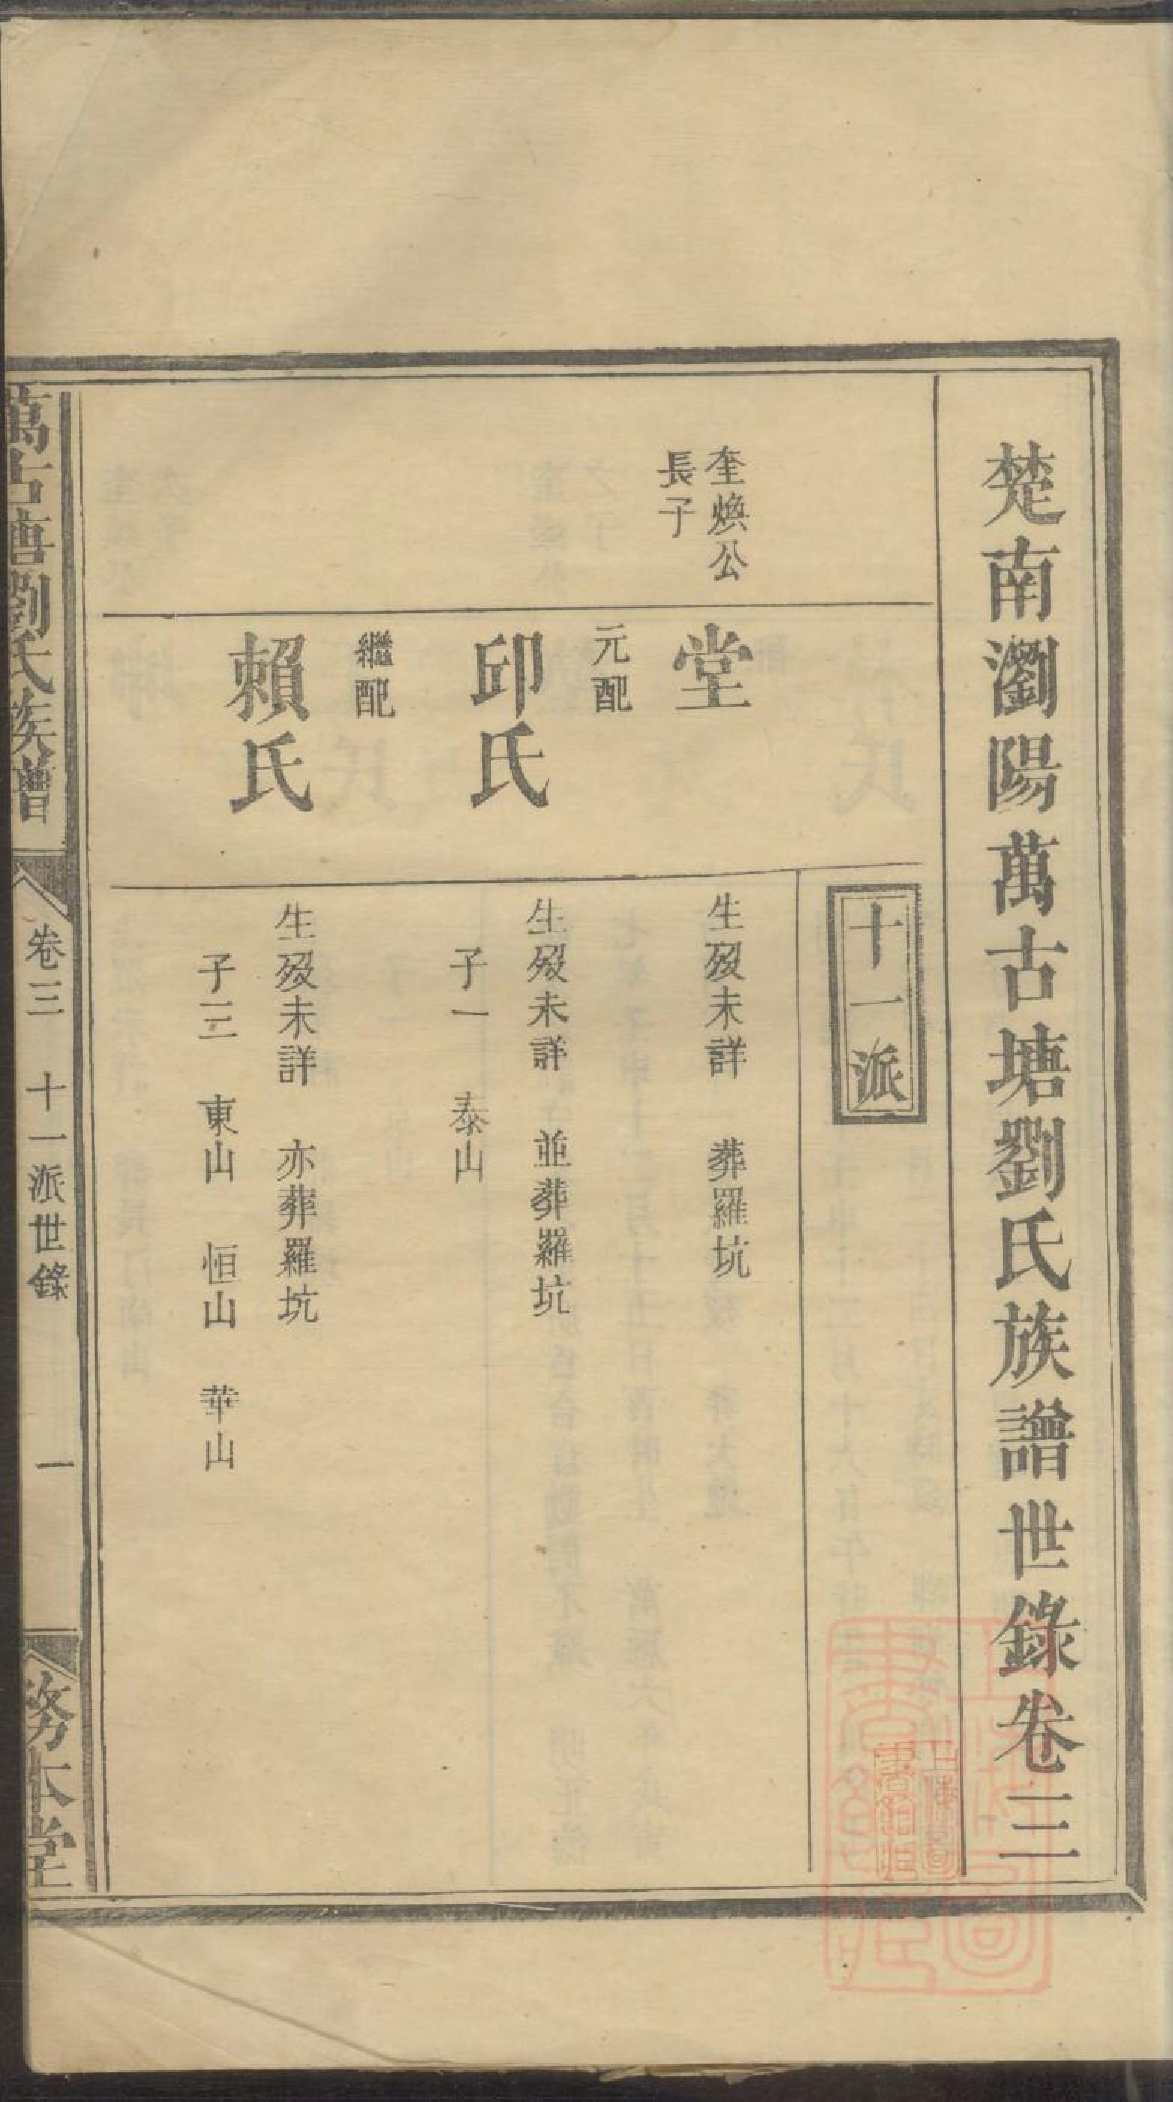 楚南瀏陽萬古塘劉氏族譜世錄卷三
十一派
奎煥公
長子
堂
生歿未詳　葬羅坑
元配
邱氏
生歿未詳　並葬羅坑
子一　泰山
繼配
賴氏
生歿未詳　亦葬羅坑
子三　東山　恒山　華山
萬古塘劉氏族譜
卷三　十一派世錄　一
務本堂